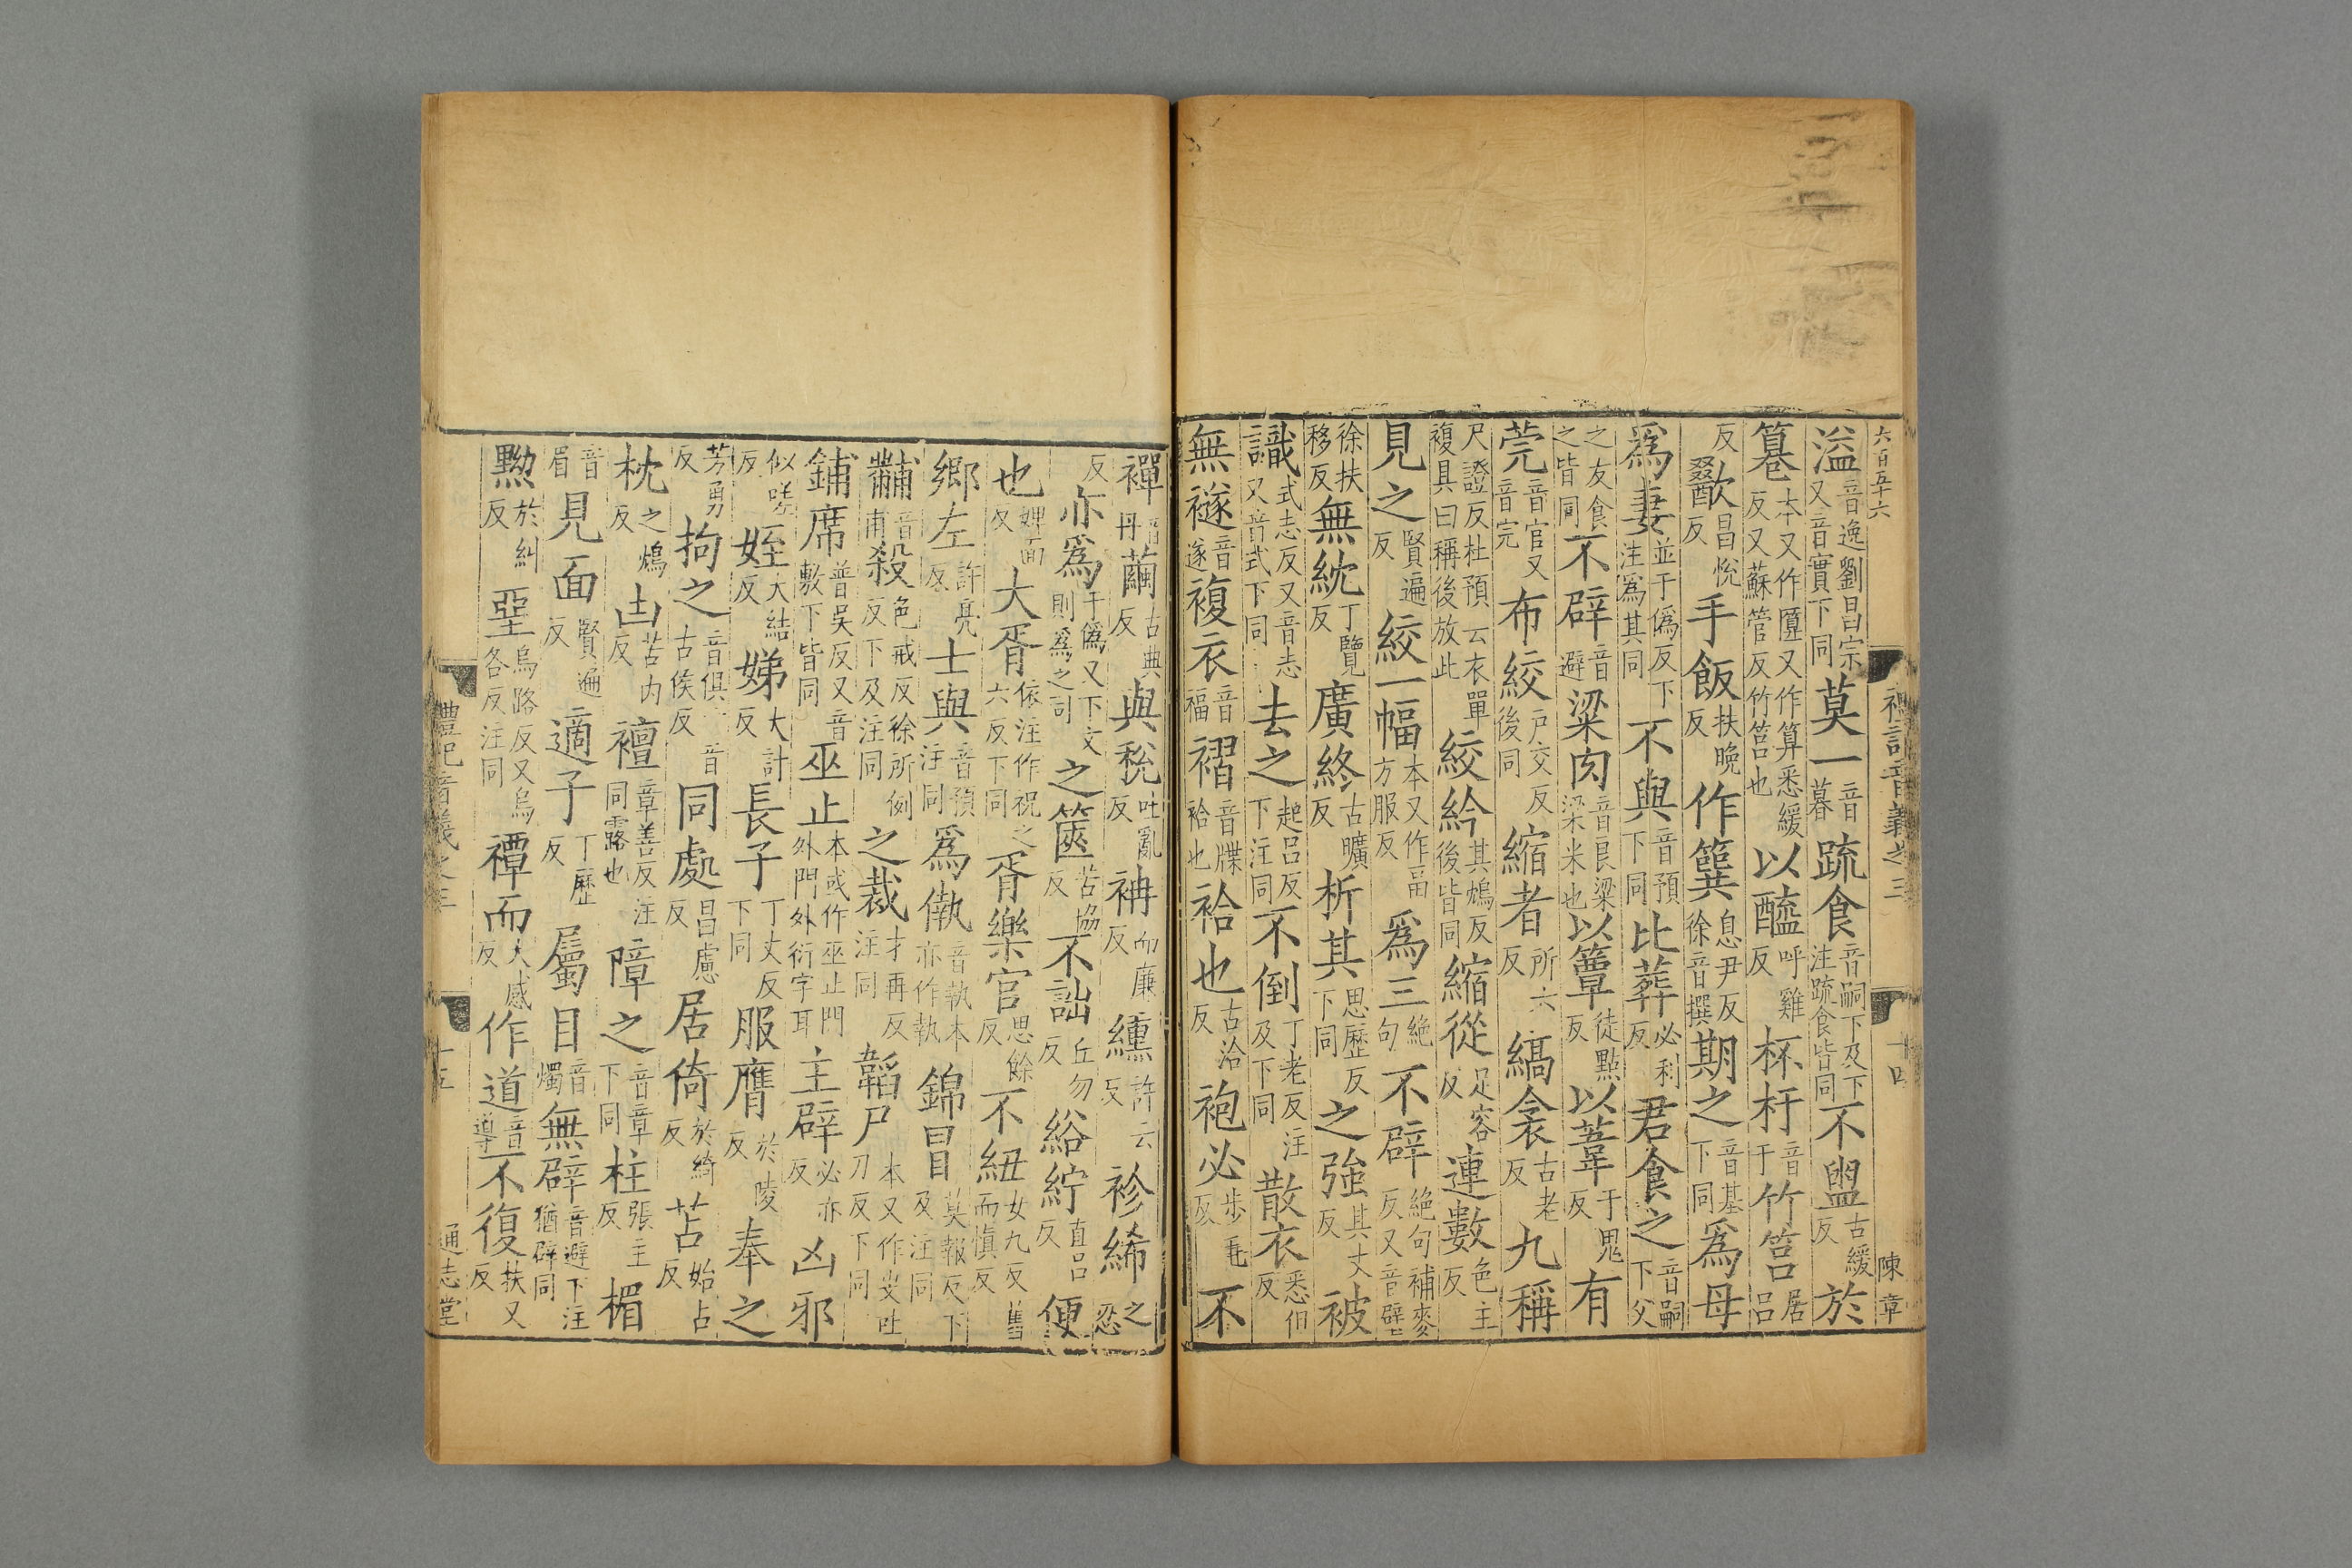 六百五十六 禮記音義之三 十四 陳章
溢音逸劉昌宗又音實下同莫一音暮疏食音嗣下及下注疏食皆同不盥古緩反於
篹本又作匴又作算悉緩反又蘇管反竹筥也以醯呼雞反杯杅音于竹筥居呂
反歠昌悅反手飯扶晚反作簨息尹反徐音撰期之音基下同爲母
爲妻並于僞反下注爲其同不與音預下同比葬必利反君食之音嗣下父
之友食之皆同不辟音避粱肉音良粱粱米也以簟徒點反以葦于鬼反有
莞音官又音完布絞戶交反後同縮者所六反縞衾古老反九稱
尺證反杜預云衣單複具曰稱後放此絞紟其鴆反後皆同縮從足容反連數色主反
見之賢遍反絞一幅本又作畐方服反爲三絕句不辟絕句補麥反又音壁
徐扶移反無紞丁覽反廣終古曠反析其思歷反下同之強其丈反被
識式志反又音志又音式下同去之起呂反下注同不倒丁老反注及下同散衣悉但反
無襚音遂複衣音福褶音牒袷也袷也古洽反袍必步毛反不
襌音丹繭古典反與稅吐亂反袡而廉反纁許云反袗絺之忍
反亦爲于僞又下文則爲之同之篋苦協反不詘丘勿反綌紵直呂反便
也婢面反大胥依注作祝之六反下同胥樂官思餘反不紐女九反舊而愼反
鄉左許亮反士與音預注同爲音執本亦作執錦冒莫報反下及注同
黼音甫殺色戒反徐所例反下及注同之裁才再反注同韜尸本又作弢吐刀反下同
鋪席普吳反又音敷下皆同巫止本或作巫止門外門外衍字耳主辟必亦反凶邪
似嗟反姪大結反娣大計反長子丁丈反下同服膺於陵反奉之
芳勇反拘之音俱一音古侯反同處昌慮反居倚於綺反苫始占反
枕之鴆反凷苦內反襢章善反注同露也障之音章下同柱張主反楣
音眉見面賢遍反適子丁歷反屬目音燭無辟音避下注猶辟同
黝於糾反堊烏路反又烏各反注同禫而大感反作道音導不復扶又反
禮記音義之三 十五 通志堂